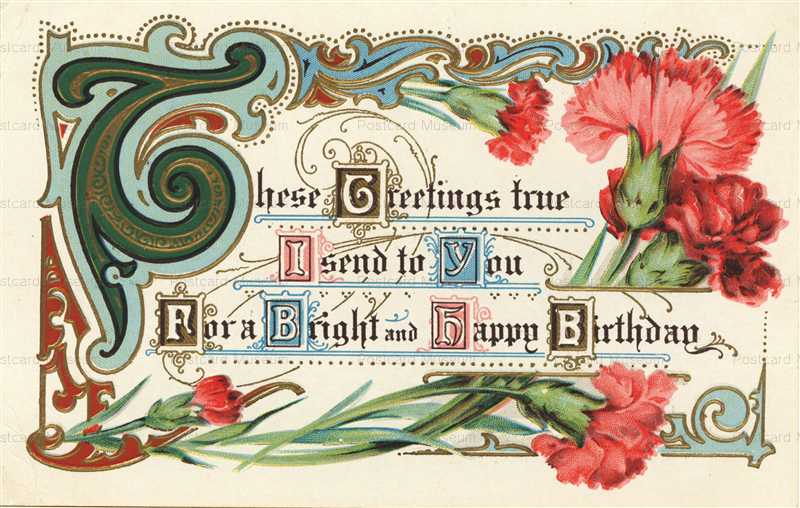 These Greetings true
I send to You
For a Bright and Happy Birthday
Postcard Museum